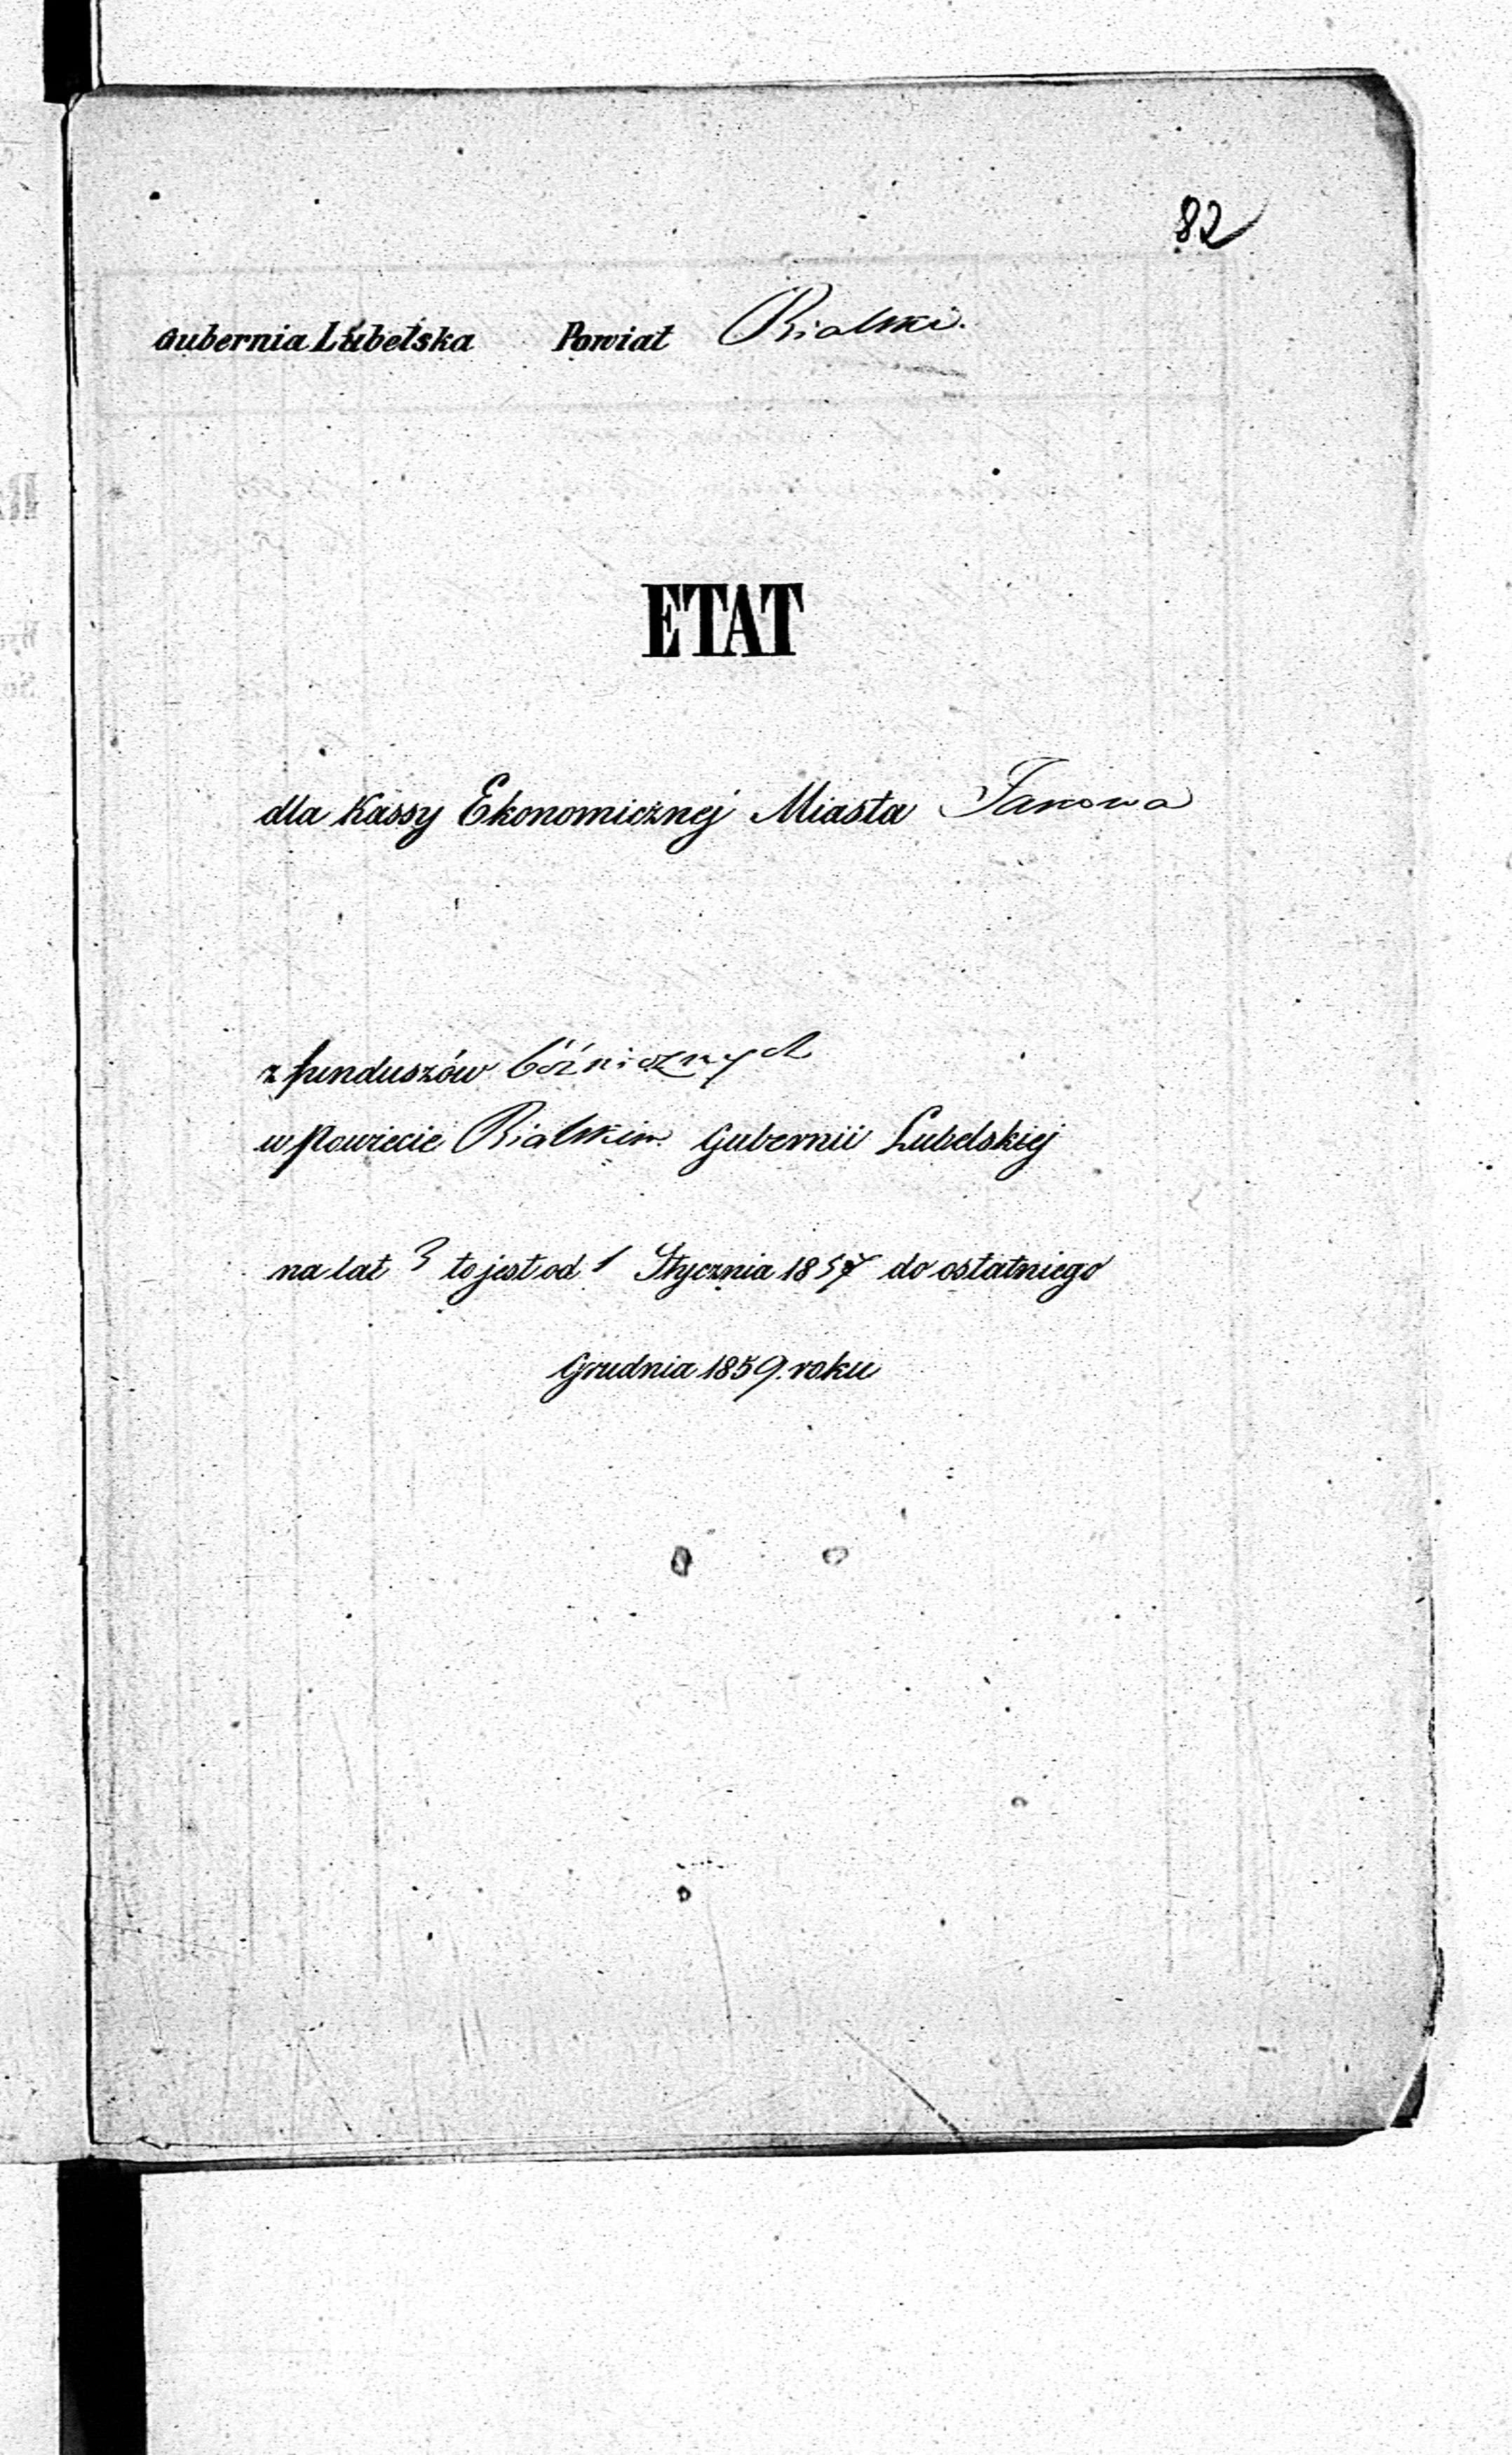 82
Gubernia Lubelska Powiat Bialski.
ETAT
dla Kassy Ekonomicznej Miasta Janowa
z funduszów bóżnicznych
w Powiecie Bialskim Gubernii Lubelskiej
na lat 3 to jest od 1 Stycznia 1857 do ostatniego
Grudnia 1859. roku